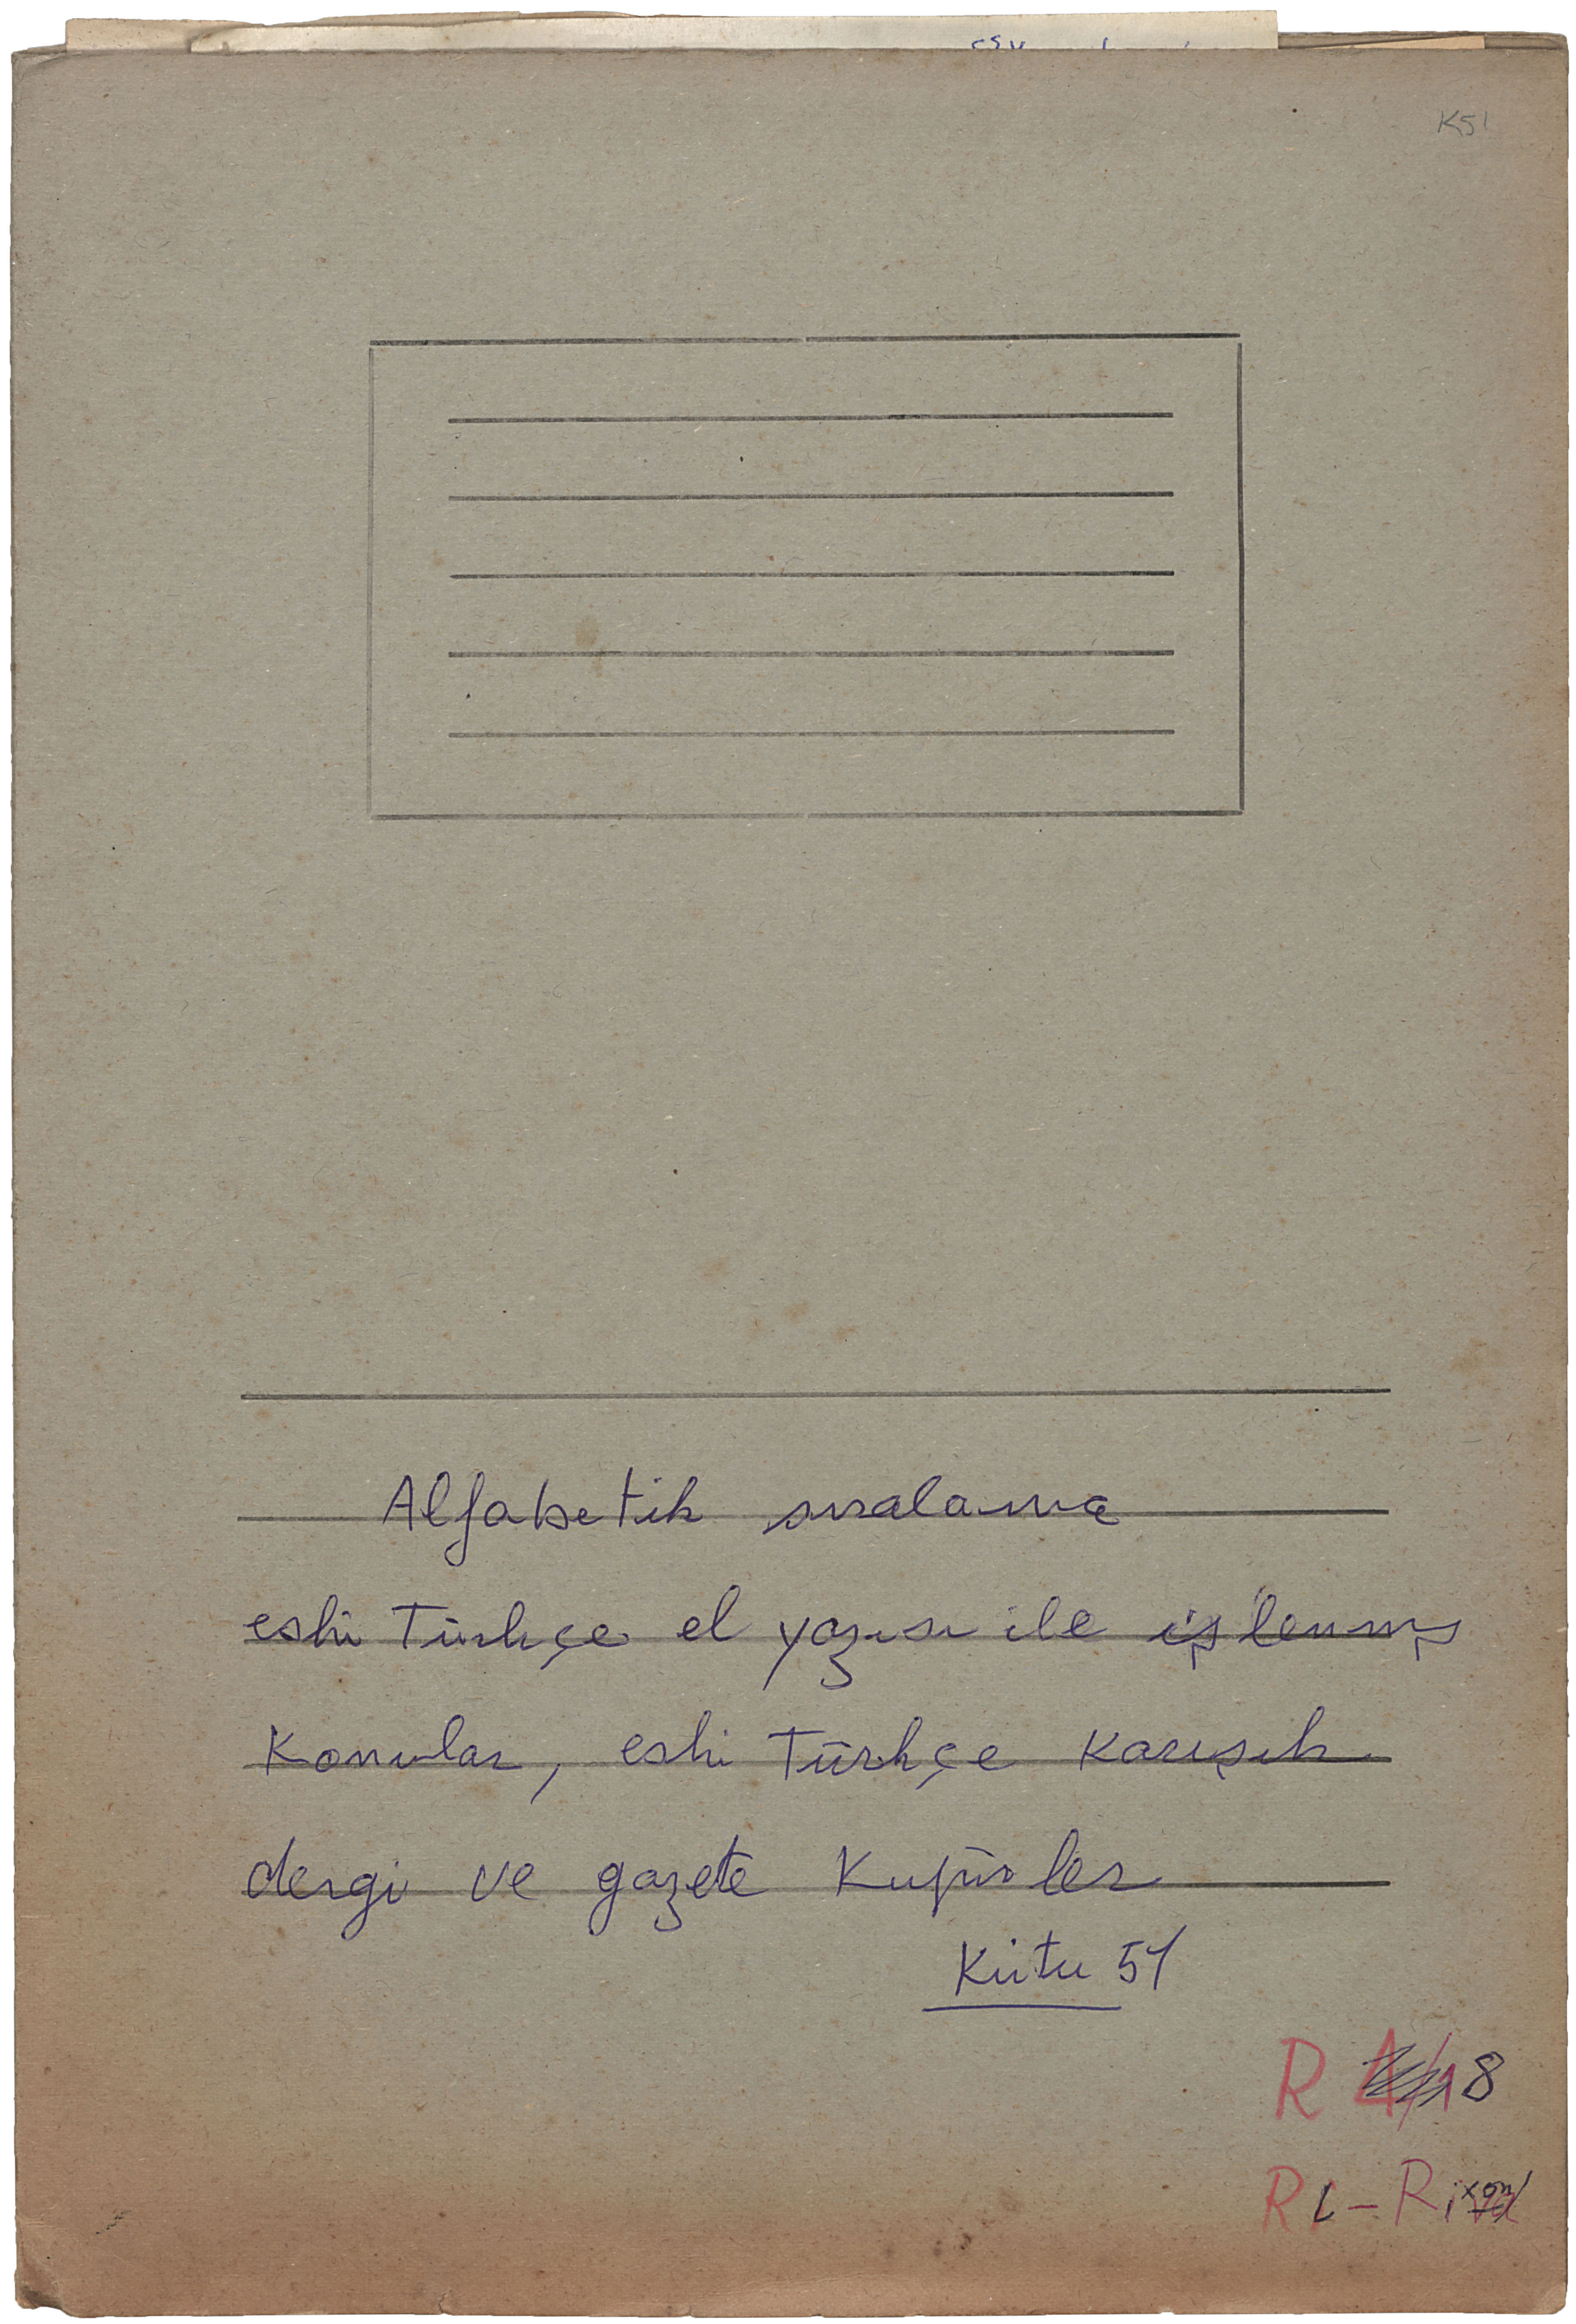 K51
Alfabetik sıralama
eski Türkçe el yazısı ile işlenmiş
Konular, eski Türkçe karışık
dergi ve gazete Kupürler
Kutu 51
R 8
Ri - Rixon